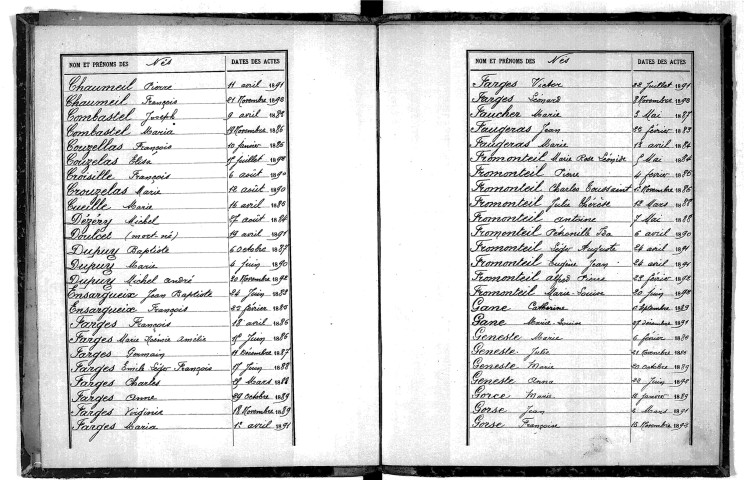 NOM ET PRÉNOMS DES Nés DATES DES ACTES
Chaumeil Pierre 11 avril 1891
Chaumeil François 21 Novembre 1893
Combastel Joseph 9 avril 1888
Combastel Maria Novembre 1886
Couzellas François 10 janvier 1886
Couzelas Elisa Juillet
Croisille François 6 août 1890
Crouzelas Marie 12 août 1890
Cueille Marie 16 avril 1886
Dézéry Michel 27 août 1884
Doulcet (mort-né) 19 avril 1891
Dupuy Baptiste 6 Octobre
Dupuy Marie 4 Juin 1890
Dupuy Michel André 20 Novembre 1892
Ensargueix Jean Baptiste 24 Juin 1883
Ensargueix François 23 février
Farges François 18 avril 1886
Farges Marie Amélie Juin 1886
Farges Germain 11 Décembre 1887
Farges Emile Léger François Juin 1888
Farges Charles Mars 1888
Farges Anne 29 Octobre 1889
Farges Virginie 18 Novembre 1889
Farges Maria 1er avril 1891
NOM ET PRÉNOMS DES Nés DATES DES ACTES
Farges Victor 22 Juillet 1891
Farges Léonard Novembre
Faucher Marie 3 Mai 1887
Faugeras Jean 22 février 1883
Faugeras Marie 13 avril 1886
Fromonteil Marie Rose Mai 1884
Fromonteil Pierre 4 février 1886
Fromonteil Charles Toussaint Novembre 1886
Fromonteil Julie Thérèse 12 Mars 1888
Fromonteil Antoine 7 Mai 1888
Fromonteil Pétronille 6 avril 1890
Fromonteil Léger Auguste 24 avril 1891
Fromonteil Eugène Jean 24 avril 1891
Fromonteil Alfred Pierre 22 février
Fromonteil Marie Louise 20 Juin
Gane Catherine Septembre 1889
Gane Marie Louise 27 décembre 1891
Geneste Marie 6 février 1886
Geneste Julie 21 Novembre
Geneste Marie 20 Octobre 1889
Geneste Anna 22 Juin
Gorce Maria 12 janvier 1889
Gorse Jean Mars 1891
Gorse Françoise 13 Novembre